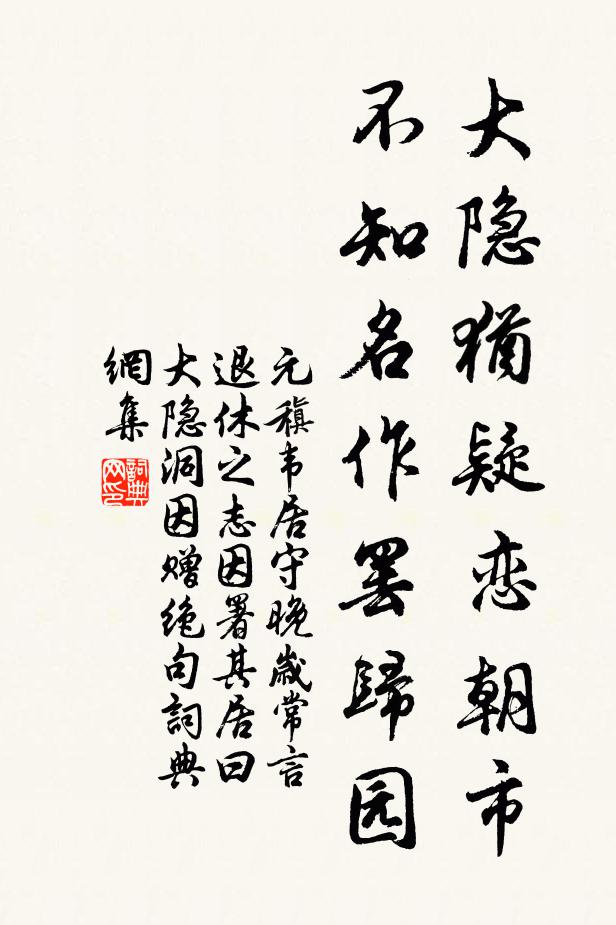 大隐猶疑恋朝市
不知名作罢歸园
元稹韦居守晚歲常言
退休之志因署其居曰
大隐洞因赠绝句詞典
網集
詞典
网印